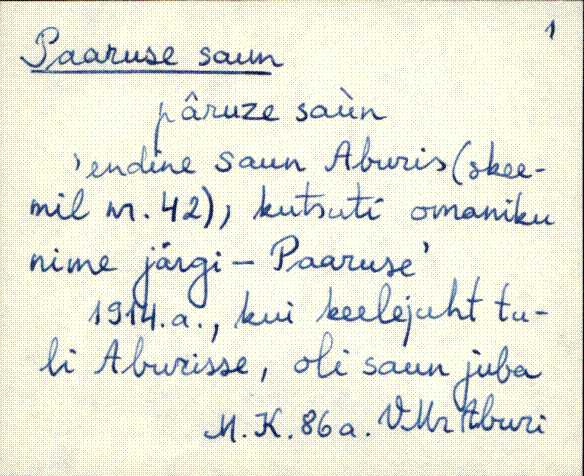 1
Paaruse saun
pâruze saùn
'endine saun Aburis (skee-
mil nr. 42), kutsuti omaniku
nime järgi – Paaruse'
1914. a., kui keelejuht tu-
li Aburisse, oli saun juba
M. K. 86 a. VMr Aburi